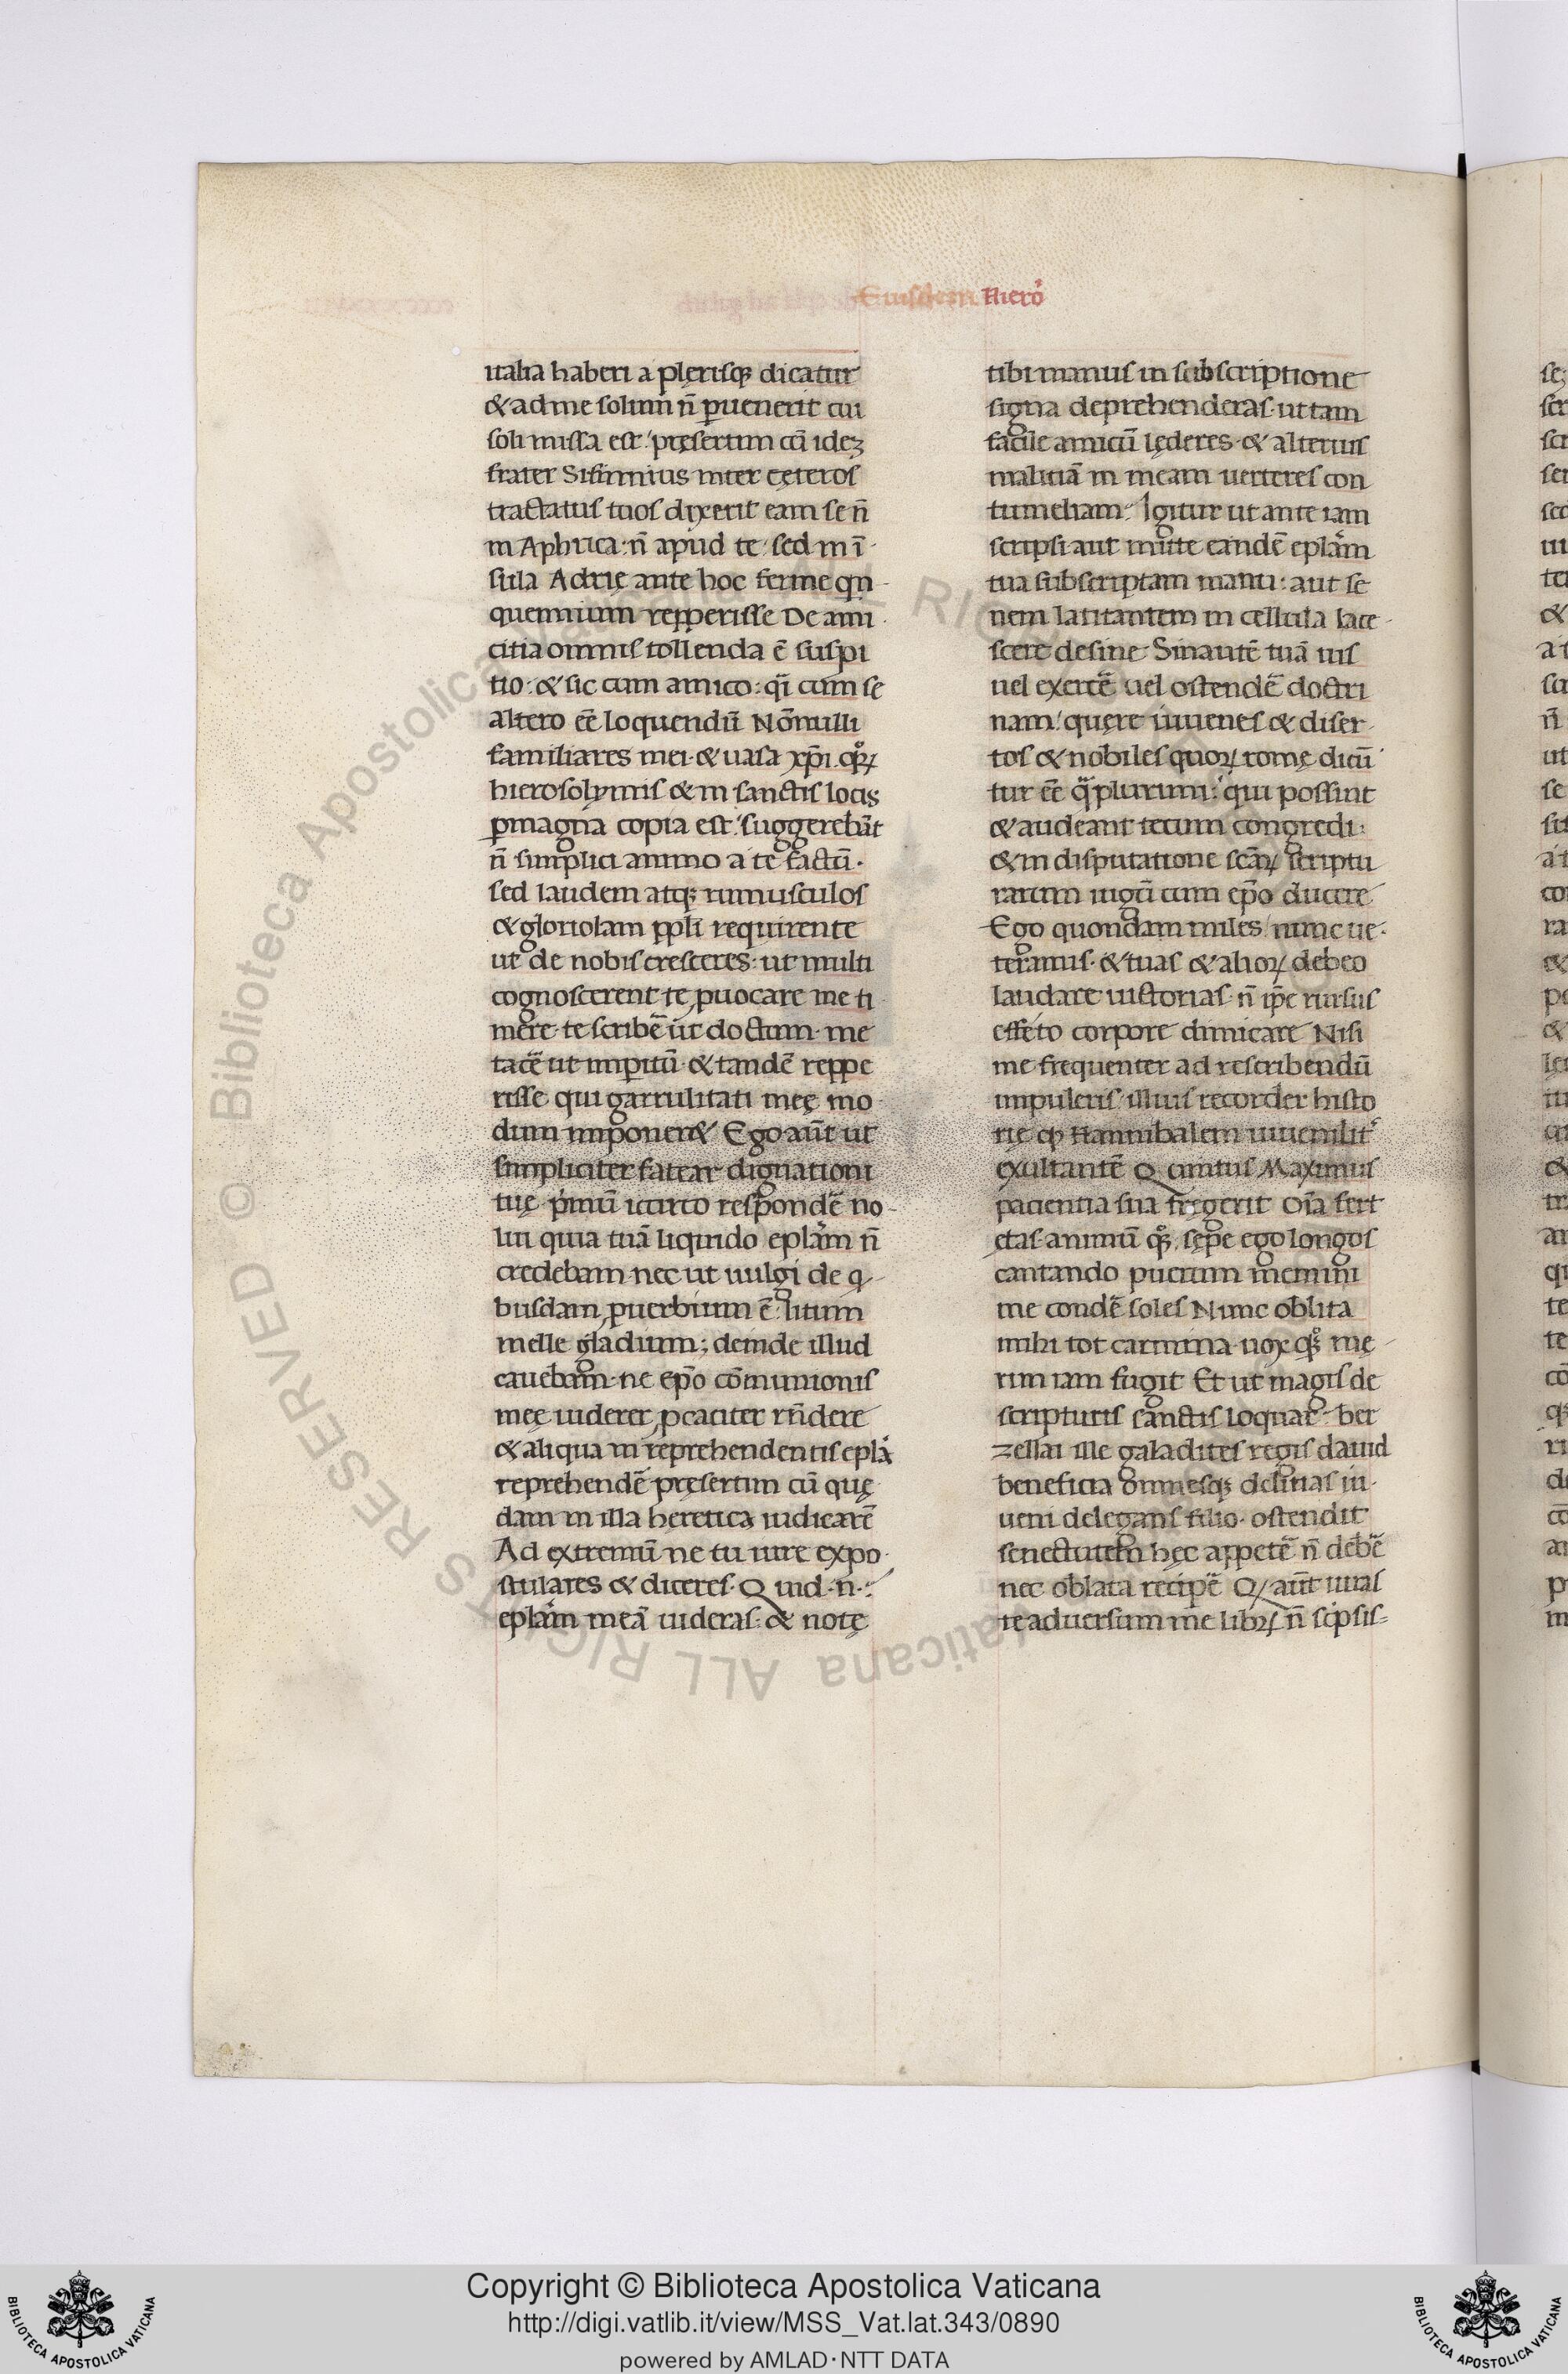 Eiusdem Niero᷒
italia haberi a plęrisq; dicatur
& ad me solum n̄ ꝑuenerit cui
soli missa est: pręsertim cū idez
frater Sisinnius inter cęteros
tractatus tuos dixerit eam se n̄
in Aphrica: n̄ apud te: sed in ī
sula Adrię ante hoc ferme qn
quennium repperisse De ami
citia omnis tollenda ē suspi
tio: & sic cum amico: qi cum se
altero eē loquendū Nōnulli
familiares mei & uasa xp̄i qꝝ
hierosolymis & in sanctis locis
ꝑmagna copia est: suggerebāt
n̄ simplici animo a te factū.
sed laudem atq; rumusculos
& gloriolam ppli requirente
ut de nobis cresceres: ut multi
cognoscerent te ꝓuocare me ti
mere te scribē ut doctum me
tacē ut imꝑitū & tandē reppe
risse qui garrulitati meę mo
dum imponer& Ego aūt ut
simpliciter fatear dignationi
tuę pͥmū iccirco respondē no
lui quia tuā liquido eplam n̄
credebam nec ut uulgi de q
busdam ꝓuerbium ē: litum
melle gladium; deinde illud
cauebam ne ep̄o cōmunionis
meę uiderer ꝓcaciter rn̄dere
& aliqua in reprehendentis epla
reprehendē pręsertim cū quę
dam in illa heretica iudicarē
Ad extremū ne tu iure expo
stulares & diceres. Quid n̄:
eplam meā uideras: & notę
tibi manus in subscriptione
signa deprehenderas. ut tam
facile amicū lęderes & alterius
malitiā in meam uerteres con
tumeliam: Igitur ut ante iam
scripsi aut mitte eandē eplam
tua subscriptam manu: aut se
nem latitantem in cellula lace
scere desine Sin autē tuā uis
uel exercē uel ostendē doctri
nam: quęre iuuenes & diser
tos & nobiles quoꝝ romę dicū
tur eē qͣplurimi: qui possint
& audeant tecum congredi:
& in disputatione scāꝝ scriptu
rarum iugū cum ep̄o ducere
Ego quondam miles nunc ue
teranus & tuas & alioꝝ debeo
laudare uictorias n̄ ip̄e rursus
effeto corpore dimicare Nisi
me frequenter ad rescribendū
impuleris illius recorder histo
rię ꝙ Hannibalem iuuenilit
exultantē Quintus Maximus
pacientia sua fregerit Oīa fert
etas animū qͦꝫ sępe ego longos
cantando puerum memini
me condē soles Nunc oblita
mihi tot carmina uox qͦꝫ mę
rim iam fugit Et ut magis de
scripturis sanctis loquar ber
zellai ille galadites regis dauid
beneficia omnesq; delitias iu
ueni delegans filio ostendit
senectutem hęc appetē n̄ debē
nec oblata recipē Q aūt iuras
te aduersum me libꝝ n̄ scͥpsis
Copyright © Biblioteca Apostolica Vaticana
http://digi.vatlib.it/view/MSS_Vat.lat.343/0890
powered by AMLAD·NTT DATA
BIBLIOTECA APOSTOLICA VATICANA
BIBLIOTECA APOSTOLICA VATICANA
© Biblioteca Apostolica Vaticana ALL RIGHTS RESERVED